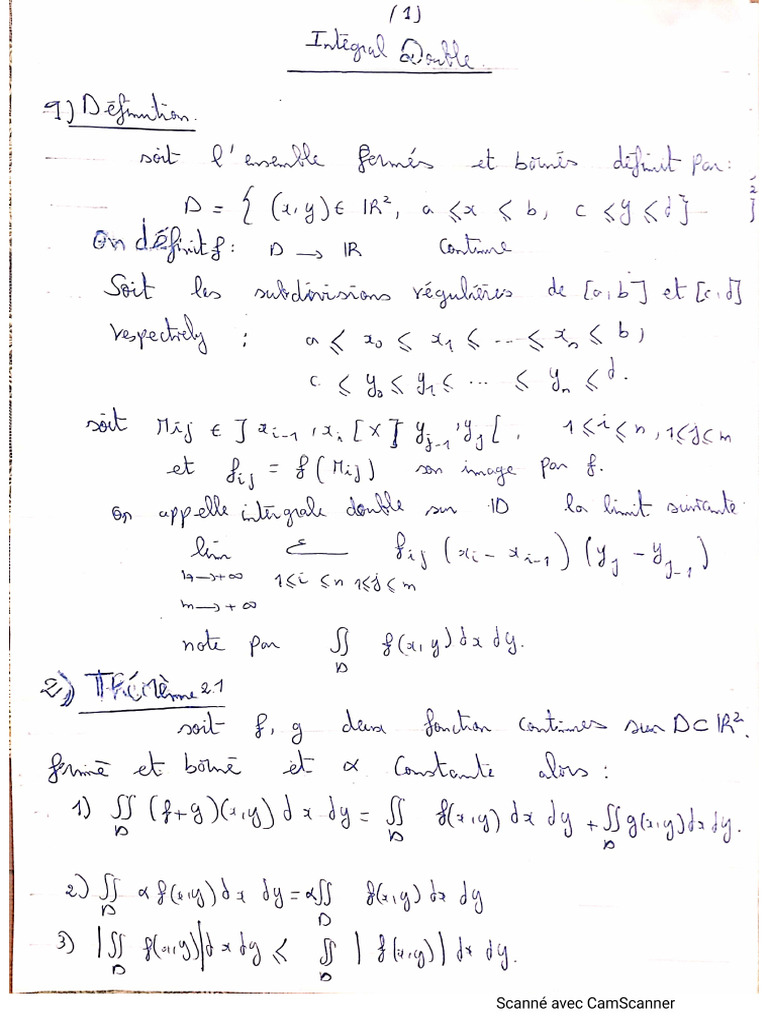 (1)
Intégral Double.
1) Définition.
soit l'ensemble fermés et bornés définit par:
D = { (x,y) ∈ IR², a ⩽ x ⩽ b, c ⩽ y ⩽ d }
On définit f : D → IR continue
Soit les subdivisions régulières de [a,b] et [c,d]
respectively : a ⩽ x₀ ⩽ x₁ ⩽ ... ⩽ xₙ ⩽ b,
c ⩽ y₀ ⩽ y₁ ⩽ ... ⩽ yₙ ⩽ d.
soit Mij ∈ ] x_{i-1}, x_i [ X ] y_{j-1}, y_j [, 1 ⩽ i ⩽ n, 1 ⩽ j ⩽ m
et f_{ij} = f(Mij) son image par f.
On appelle intégrale double sur ID la limit suivante
lim Σ f_{ij} (x_i - x_{i-1}) (y_j - y_{j-1})
n → +∞ 1 ⩽ i ⩽ n 1 ⩽ j ⩽ m
m → +∞
note par ∬_D f(x,y) dx dy.
2) Théorème 2.1
soit f, g deux fonction continues sur D ⊂ IR².
fermé et borné et α constante alors :
1) ∬_D (f+g)(x,y) dx dy = ∬_D f(x,y) dx dy + ∬_D g(x,y) dx dy.
2) ∬_D α f(x,y) dx dy = α ∬_D f(x,y) dx dy
3) |∬_D f(x,y)| dx dy ⩽ ∬_D | f(x,y) | dx dy.
Scanné avec CamScanner